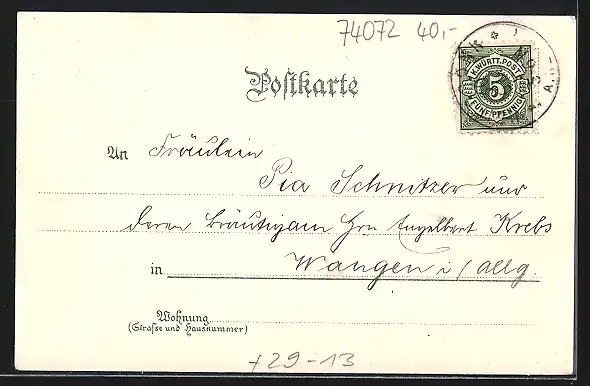 74072 40,-
K. WÜRTT. POST
5
FÜNF PFENNIG
Postkarte
An Fräulein
Pia Schnitzer und
deren Bräutigam Hrn Engelbert Krebs
in Wangen i/Allg.
Wohnung
(Straße und Hausnummer)
+29-13